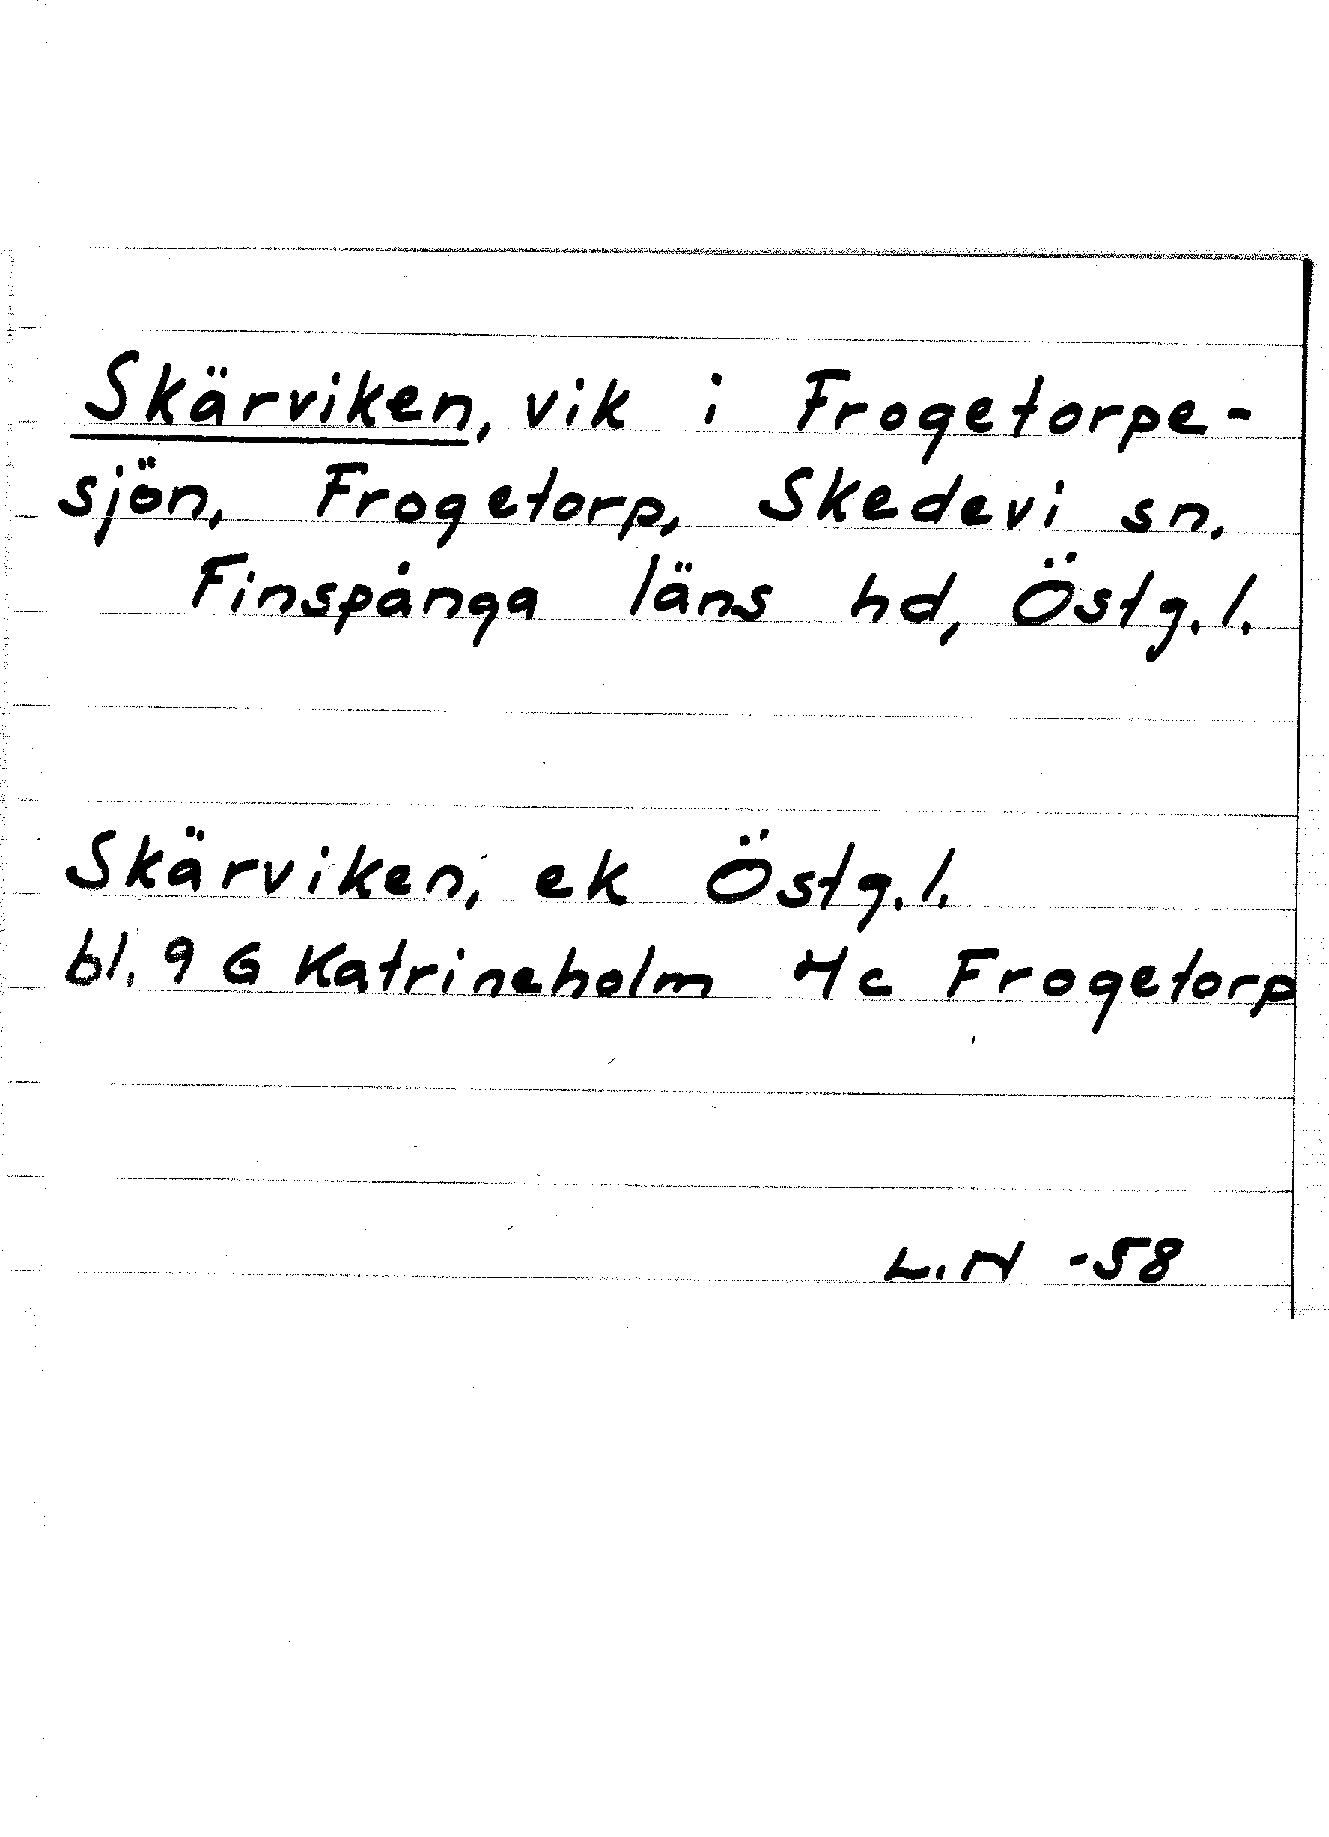 Skärviken, vik i Frogetorpe-
sjön, Frogetorp, Skedevi sn,
Finspånga läns hd, Östg. l.
Skärviken, ek Östg. l.
bl. 9 G Katrineholm 4c Frogetorp
L.N -58